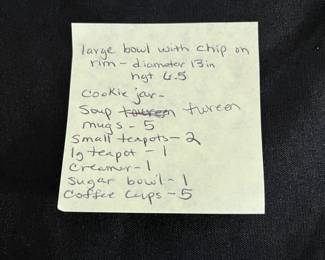 large bowl with chip on
rim - diameter 13 in
hgt 6.5
Cookie jar -
Soup tureen
mugs - 5
Small teapots - 2
lg teapot - 1
Creamer - 1
Sugar bowl - 1
Coffee Cups - 5